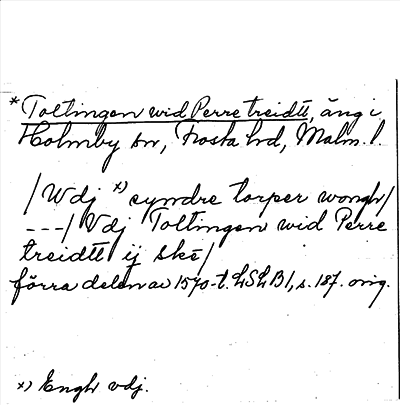 * Toltingen wid Perre treidtt, äng i
Holmby sn, Frosta hd, Malm. l.
/ Wdj x) cyndre torper wongh/
---/ Vdj Toltingen wid Perre
treidtt ij skē/
förra delen av 1570-t. LSLB1, s. 187. orig.
x) Engh vdj.